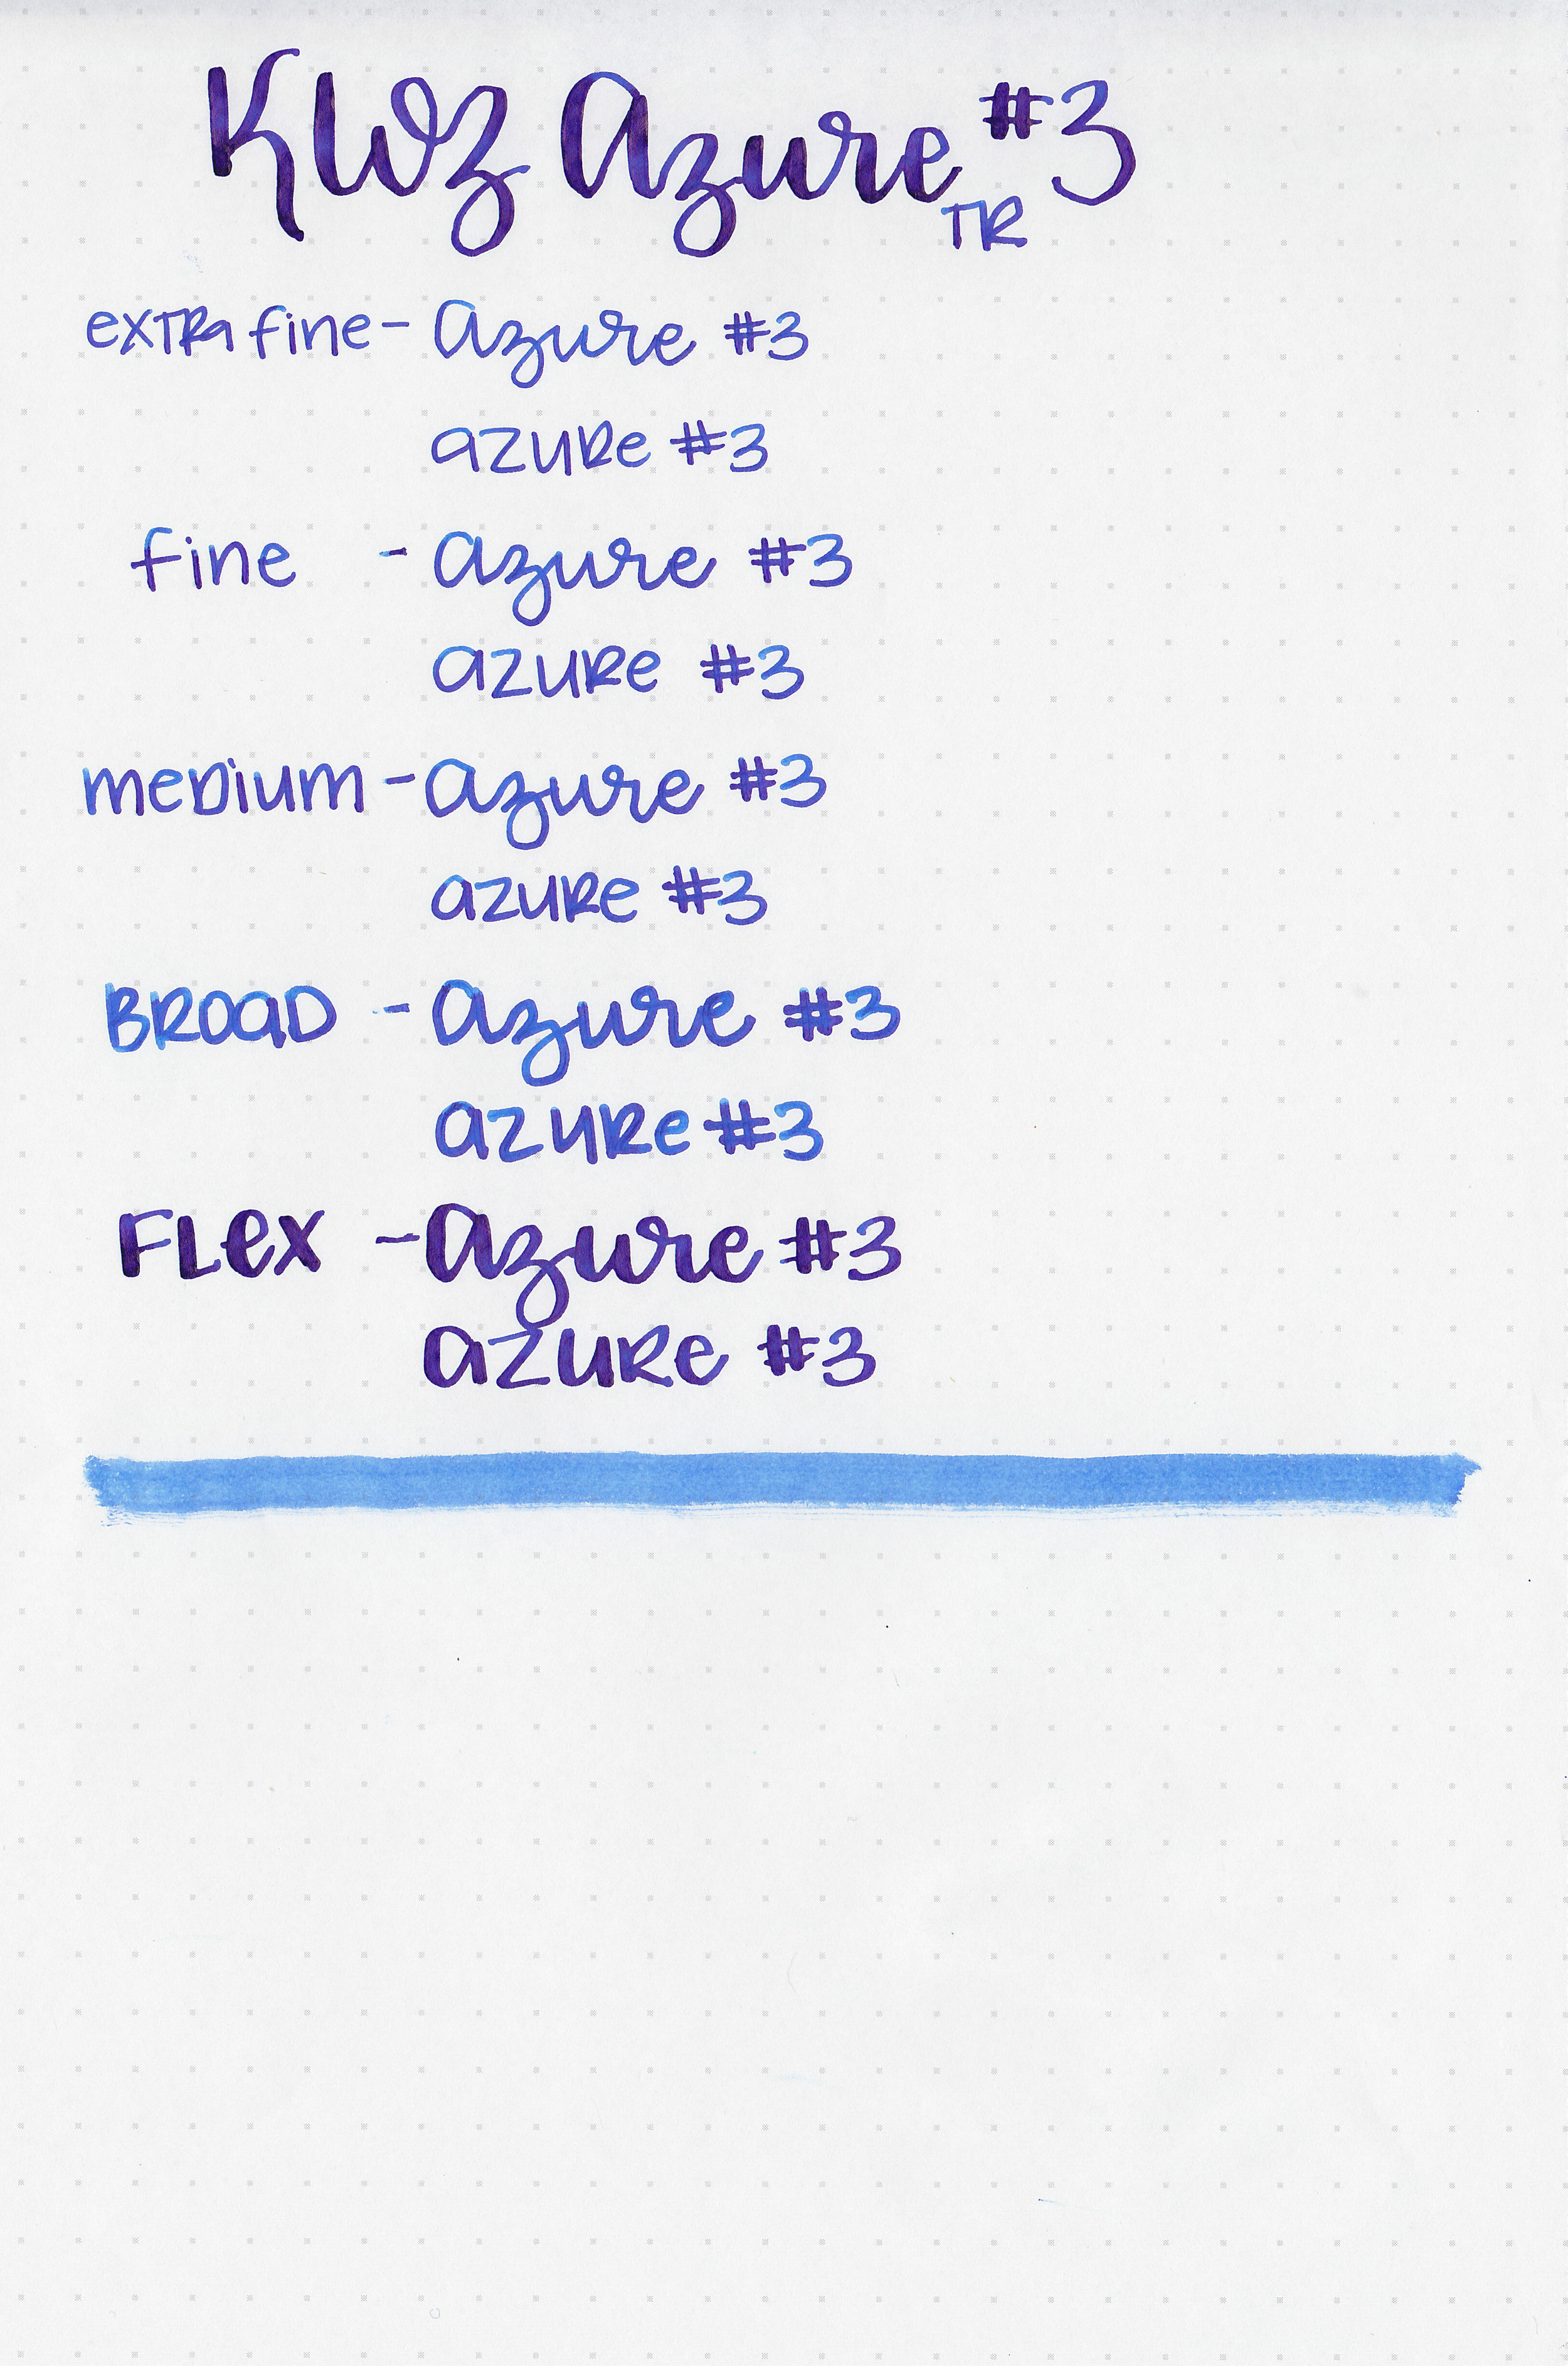 KWZ Azure #3
TR
extra fine - Azure #3
azure #3
fine - Azure #3
azure #3
medium - Azure #3
azure #3
BROAD - Azure #3
azure #3
FLex - Azure #3
azure #3